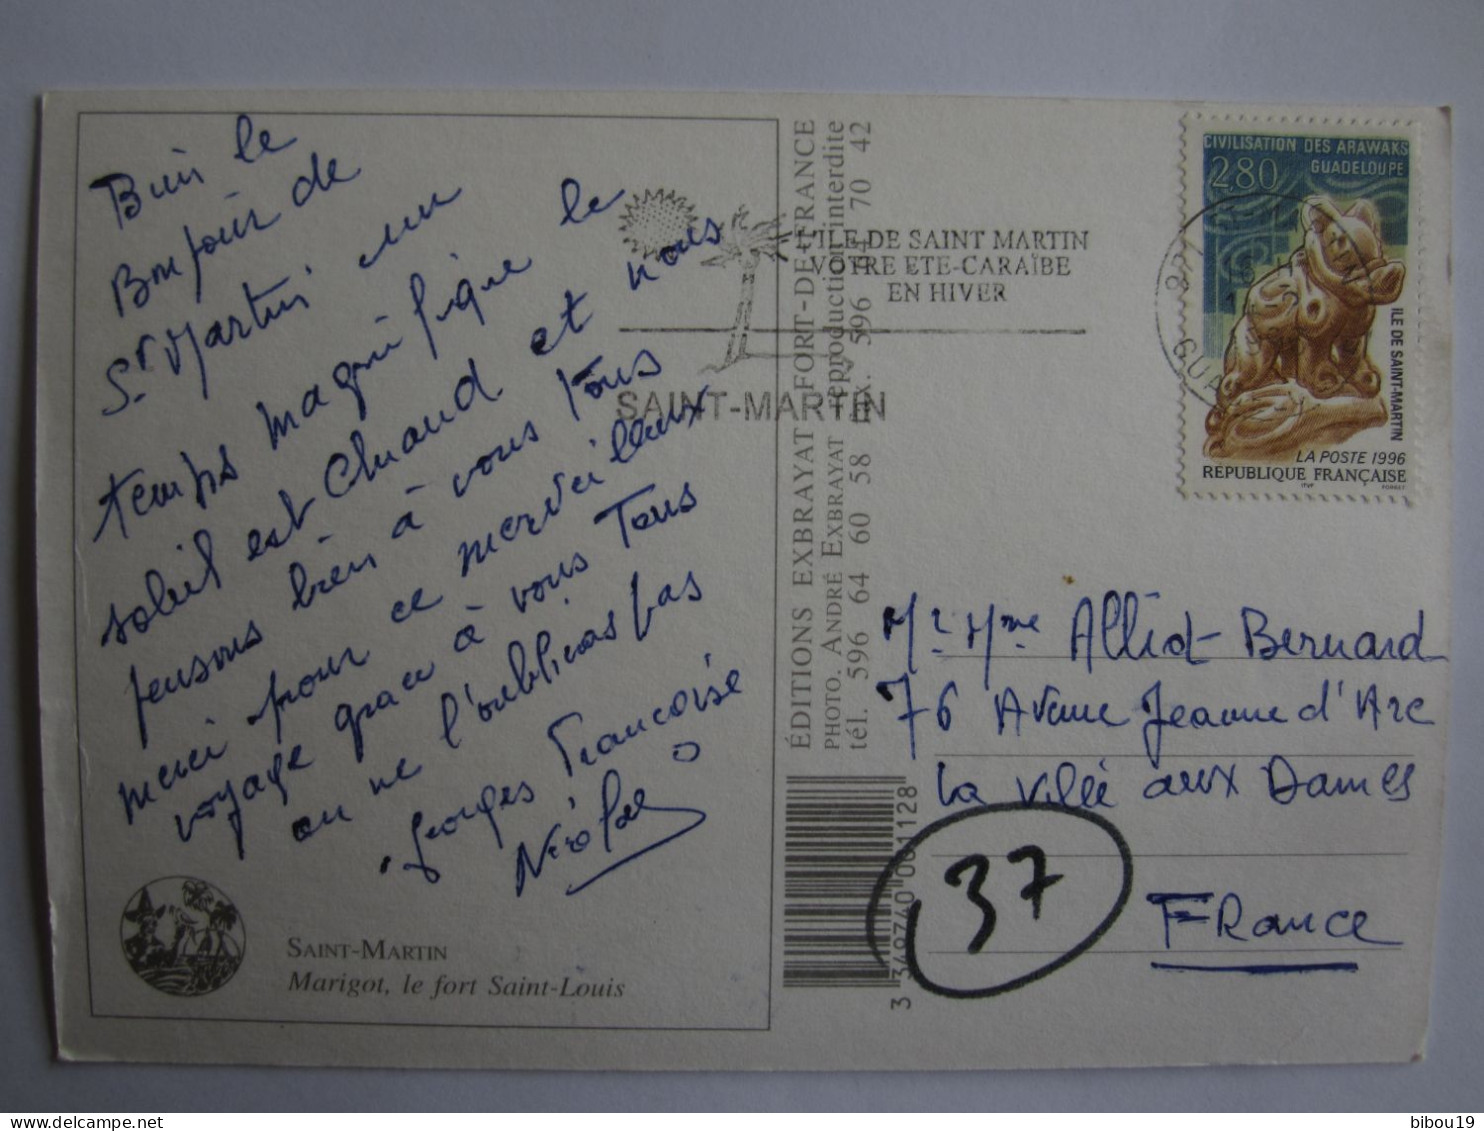 Bien le
Bonjour de
St Martin un
temps magnifique le
soleil est Chaud et nous
pensons bien à vous tous
merci pour ce merveilleux
voyage grace à vous Tous
on ne l'oublieras pas
Georges Francoise
Nicolas
SAINT-MARTIN
Marigot, le fort Saint-Louis
ÉDITIONS EXBRAYAT FORT-DE-FRANCE
PHOTO. ANDRÉ EXBRAYAT reproduction interdite
tél. 596 64 60 58 fax. 596 44 70 42
3 349740 001128
L'ILE DE SAINT MARTIN
VOTRE ETE-CARAÏBE
EN HIVER
SAINT-MARTIN
CIVILISATION DES ARAWAKS
GUADELOUPE
2,80
ILE DE SAINT-MARTIN
LA POSTE 1996
RÉPUBLIQUE FRANÇAISE
Mr Mme Alliot-Bernard
76 Avenue Jeanne d'Arc
La ville aux Dames
37
FRance
bibou19